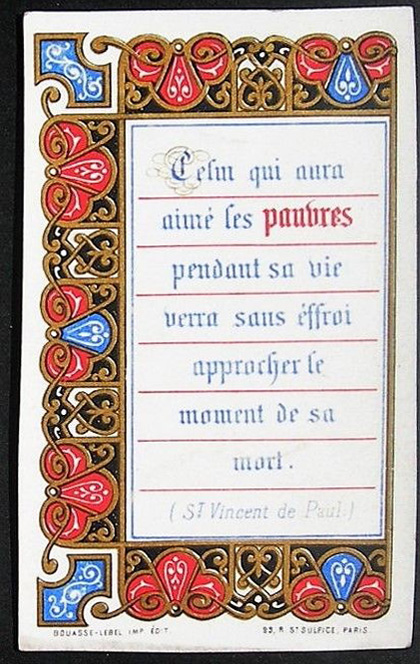 Celui qui aura
aimé les pauvres
pendant sa vie
verra sans éffroi
approcher le
moment de sa
mort.
(St Vincent de Paul)
BOUASSE-LEBEL IMP. ÉDIT.
29, R. ST SULPICE, PARIS.